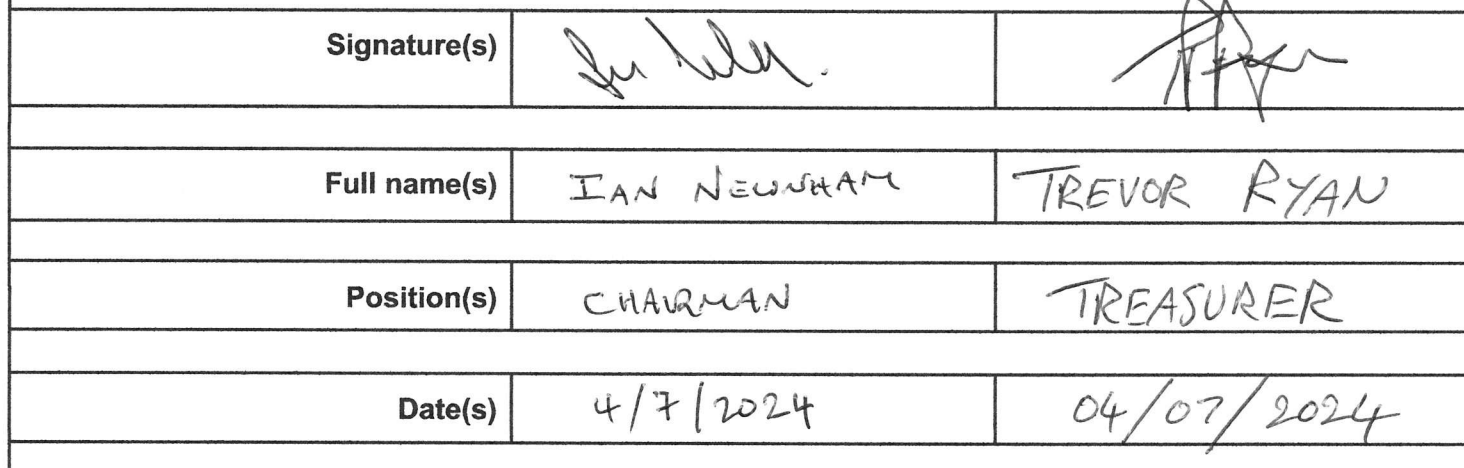 Signature(s)
Full name(s) IAN NEWNHAM TREVOR RYAN
Position(s) CHAIRMAN TREASURER
Date(s) 4/7/2024 04/07/2024